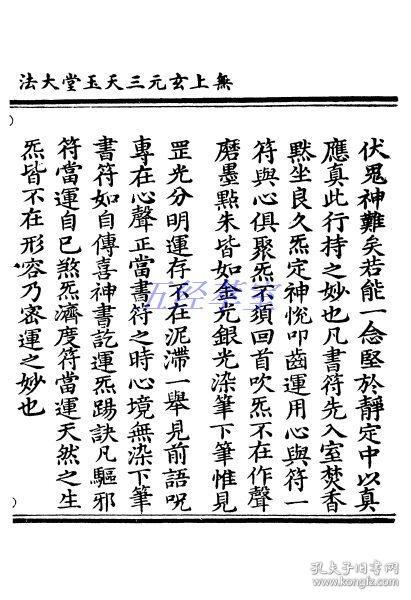 無上玄元三天玉堂大法
伏鬼神難矣若能一念堅於靜定中以真
應真此行持之妙也凡書符先入室焚香
黙坐良久炁定神恱叩齒運用心與符一
符與心俱聚炁不須回首吹炁不在作聲
磨墨點朱皆如金光銀光染筆下筆惟見
罡光分明運存不在泥滯一舉見前語呪
專在心聲正當書符之時心境無染下筆
書符如自傳喜神書訖運炁踢訣凡驅邪
符當運自巳煞炁濟度符當運天然之生
炁皆不在形容乃密運之妙也
五经萃室
孔夫子旧书网